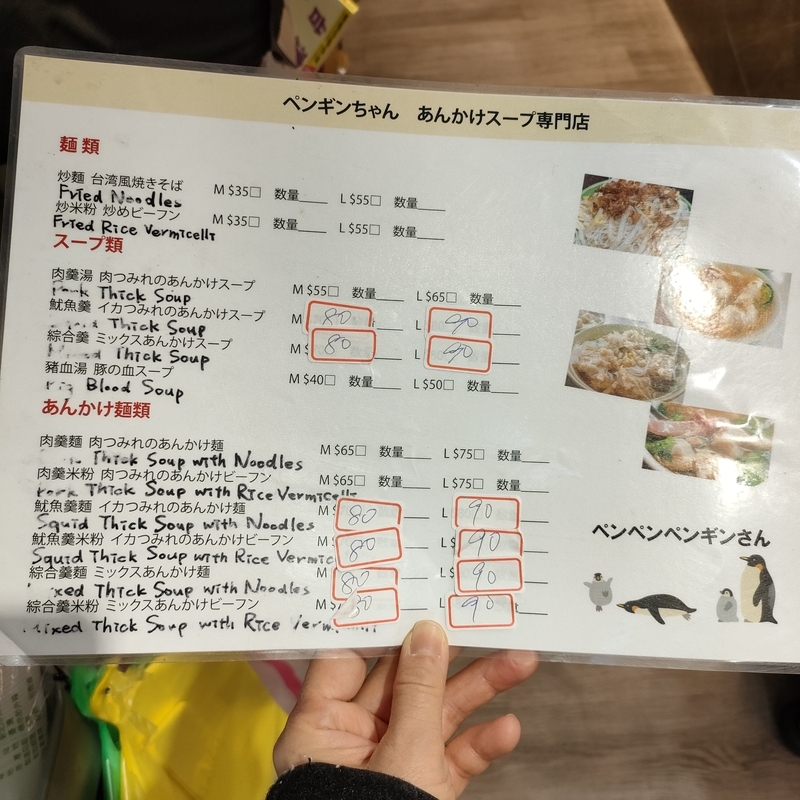 ペンギンちゃん あんかけスープ専門店
麺類
炒麵 台湾風焼きそば M $35□ 数量____ L $55□ 数量____
Fried Noodles
炒米粉 炒めビーフン M $35□ 数量____ L $55□ 数量____
Fried Rice Vermicelli
スープ類
肉羹湯 肉つみれのあんかけスープ M $55□ 数量____ L $65□ 数量____
Pork Thick Soup
魷魚羹 イカつみれのあんかけスープ M 80 L 90
Thick Soup
綜合羹 ミックスあんかけスープ M $ 80 L 90
Thick Soup
豬血湯 豚の血スープ M $40□ 数量____ L $50□ 数量____
Pig Blood Soup
あんかけ麺類
肉羹麵 肉つみれのあんかけ麺 M $65□ 数量____ L $75□ 数量____
Thick Soup with Noodles
肉羹米粉 肉つみれのあんかけビーフン M $65□ 数量____ L $75□ 数量____
Pork Thick Soup with Rice Vermicelli
魷魚羹麵 イカつみれのあんかけ麺 M 80 L 90
Squid Thick Soup with Noodles
魷魚羹米粉 イカつみれのあんかけビーフン M $ 80 L $ 90
Squid Thick Soup with Rice Vermic
綜合羹麵 ミックスあんかけ麺 M $ 80 L $ 90
Mixed Thick Soup with Noodles
綜合羹米粉 ミックスあんかけビーフン M $ 80 L $ 90
Mixed Thick Soup with Rice Verm
ペンペンペンギンさん